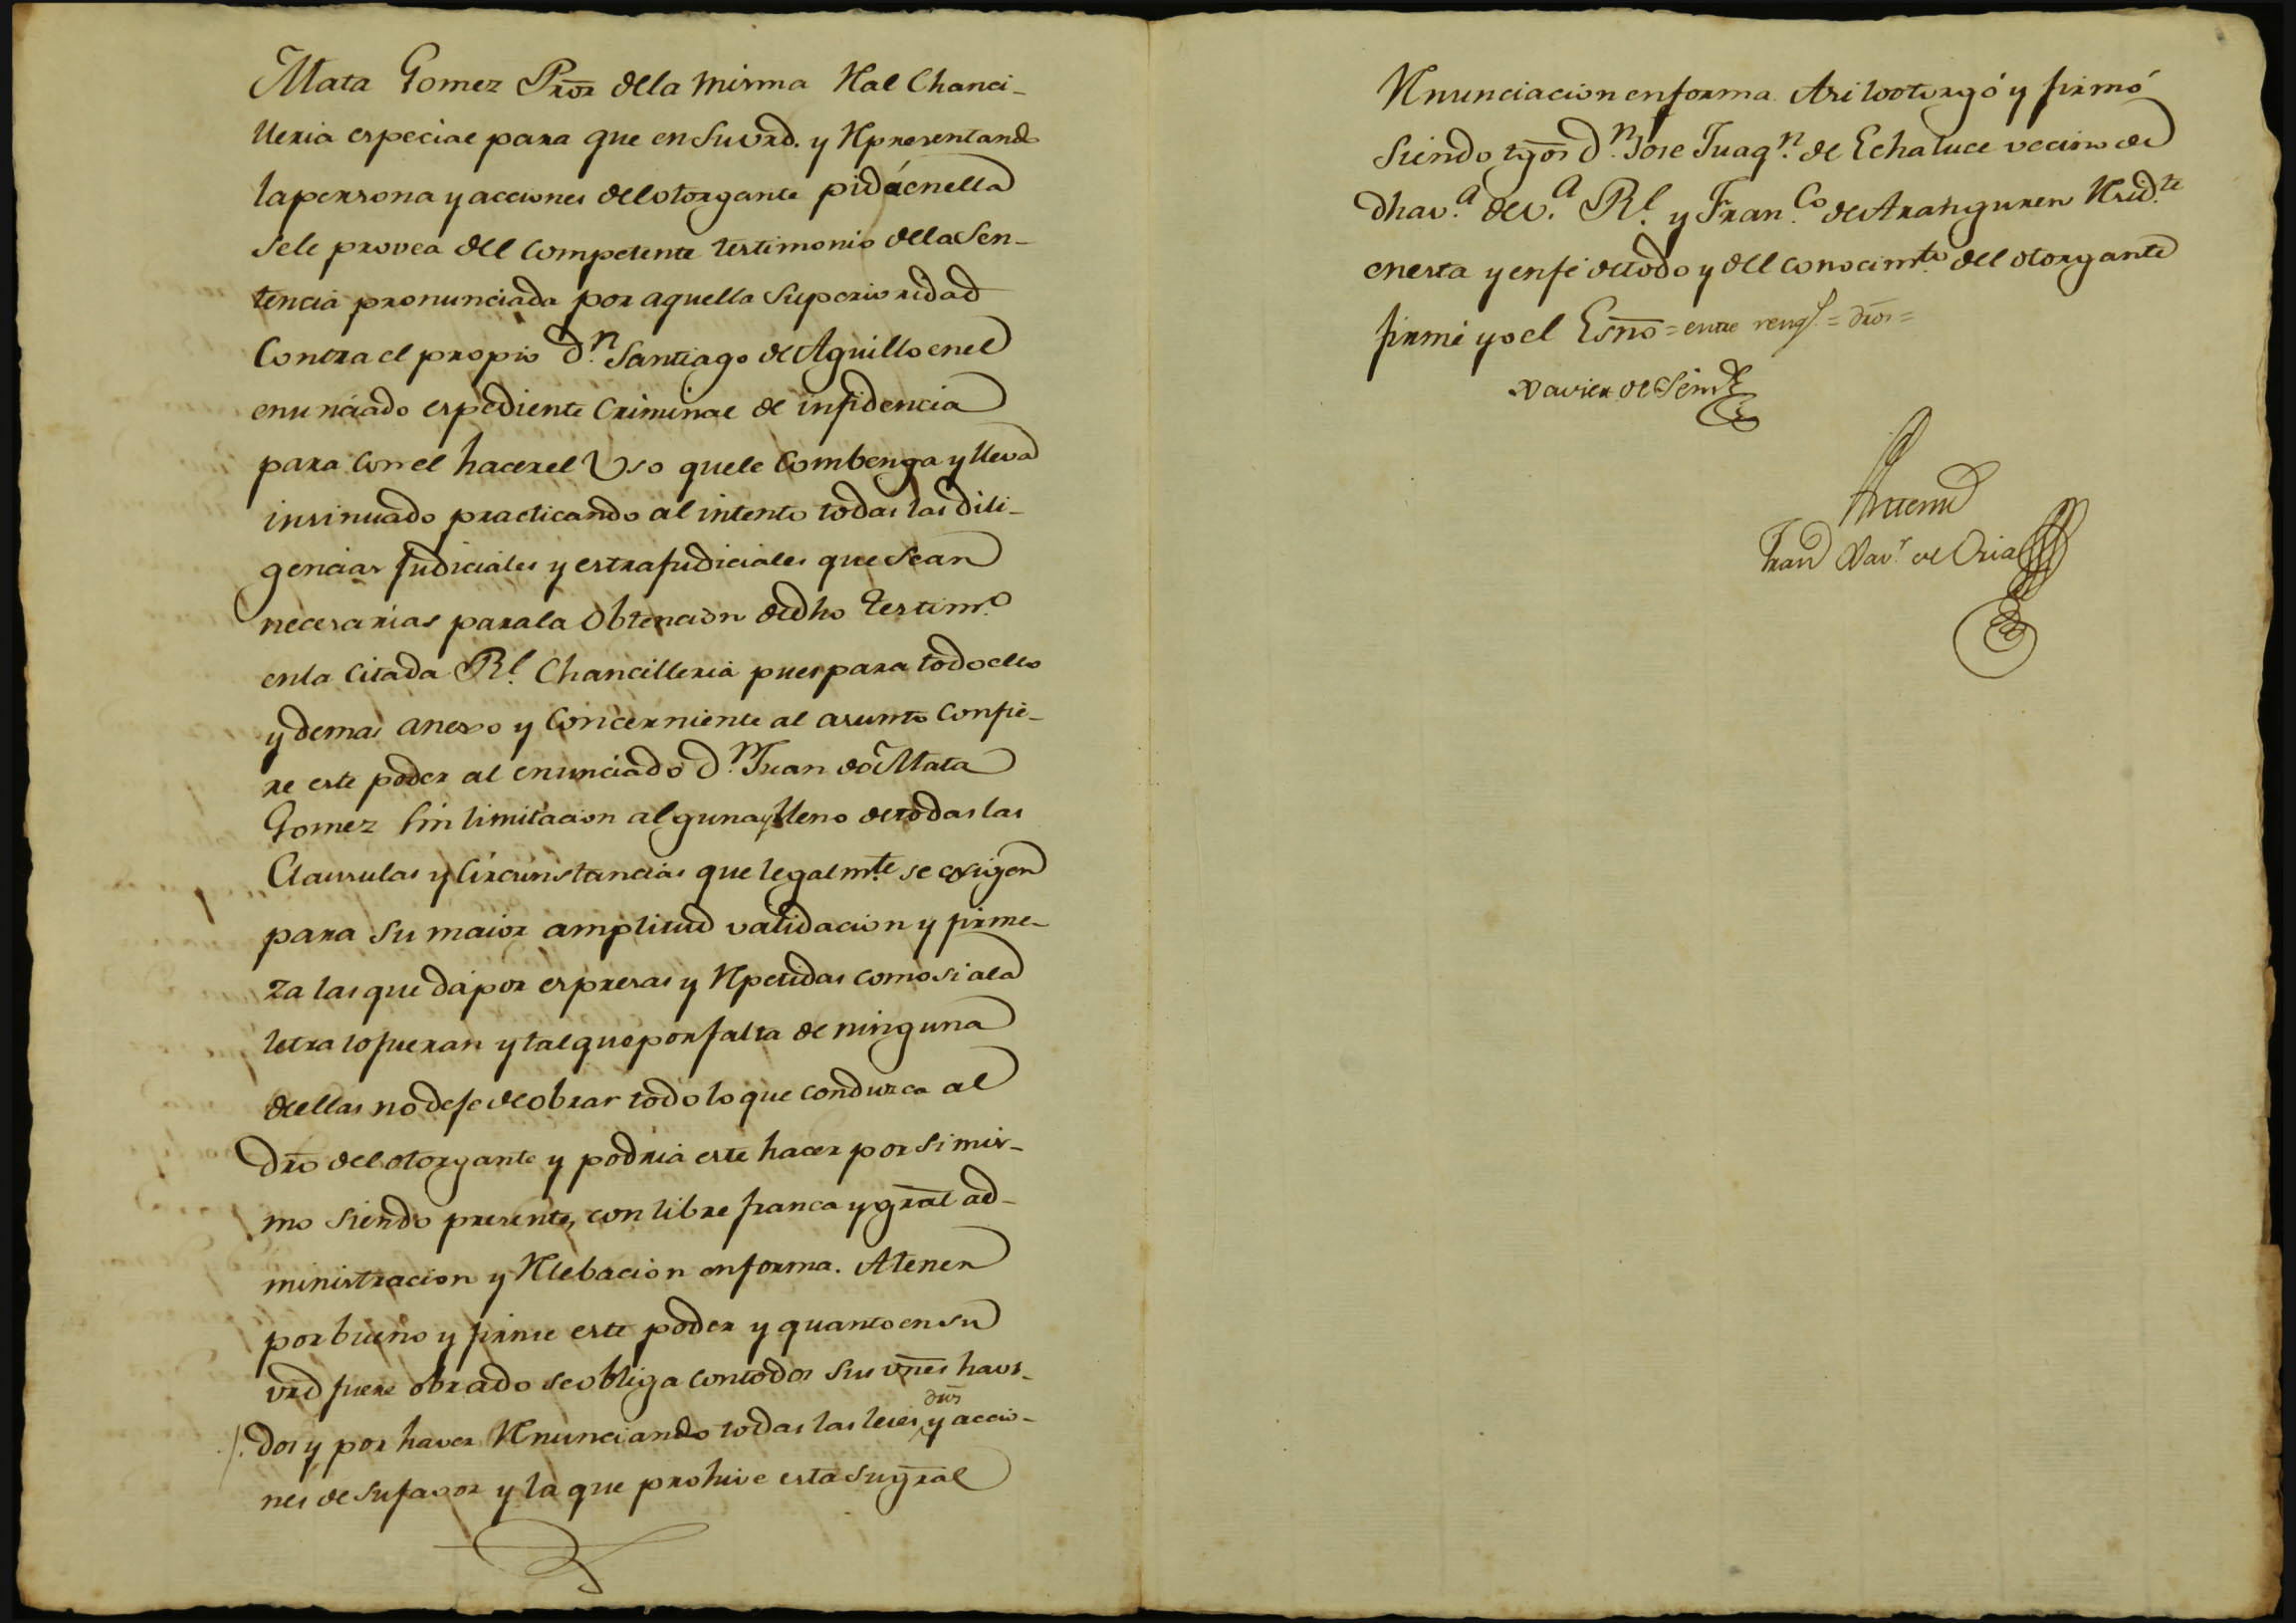 Mata Gomez Pror̄ de la misma Real Chanci-
lleria especiae para que en su vrd. y Representando
la persona y acciones del otorgante pida en ella
se le provea del competente testimonio de la Sen-
tencia pronunciada por aquella Superioridad
Contra el propio D.n Santiago de Aguillo en el
enunciado espediente Criminal de infidencia
para con el hacer el Uso que le combenga y lleva
insinuado practicando al intento todas las dili-
gencias judiciales y estrajudiciales que sean
necesarias para la obtencion de dho testim.o
en la citada Rl. Chancilleria pues para todo ello
y demas anexo y concerniente al asunto confie-
re este poder al enunciado D.n Juan de Mata
Gomez sin limitacion alguna y lleno de todas las
Clausulas y Circunstancias que legalm.te se exigen
para su maior amplitud validacion y firme-
za las que dá por espresas y Repetidas como si a la
letra lo fueran y tal que por falta de ninguna
de ellas no deje de obrar todo lo que conduzca al
dr̄o del otorgante y podria este hacer por si mis-
mo siendo presente, con libre franca y gr̄al ad-
ministracion y Relebacion en forma. A tener
por bueno y firme este poder y quanto en su
vrd fuere obrado se obliga con todos sus vn̄es havi-
dr̄os
dos y por haver Renunciando todas las leies, y accio-
nes de su favor y la que prohive esta su gr̄al
Renunciacion en forma. Asi lo otorgó y firmó
siendo tgōs D.n Jose Juaq.n de Echaluce vecino de
dha v.a de v.a Rl. y Fran.co de Aranguren Resid.te
en esta y en fé de todo y del conocim.to del otorgante
firmé yo el Esn̄o = entre rengl. = dr̄os =
Xavier de
Antemi
Fran Xav.r de Oria